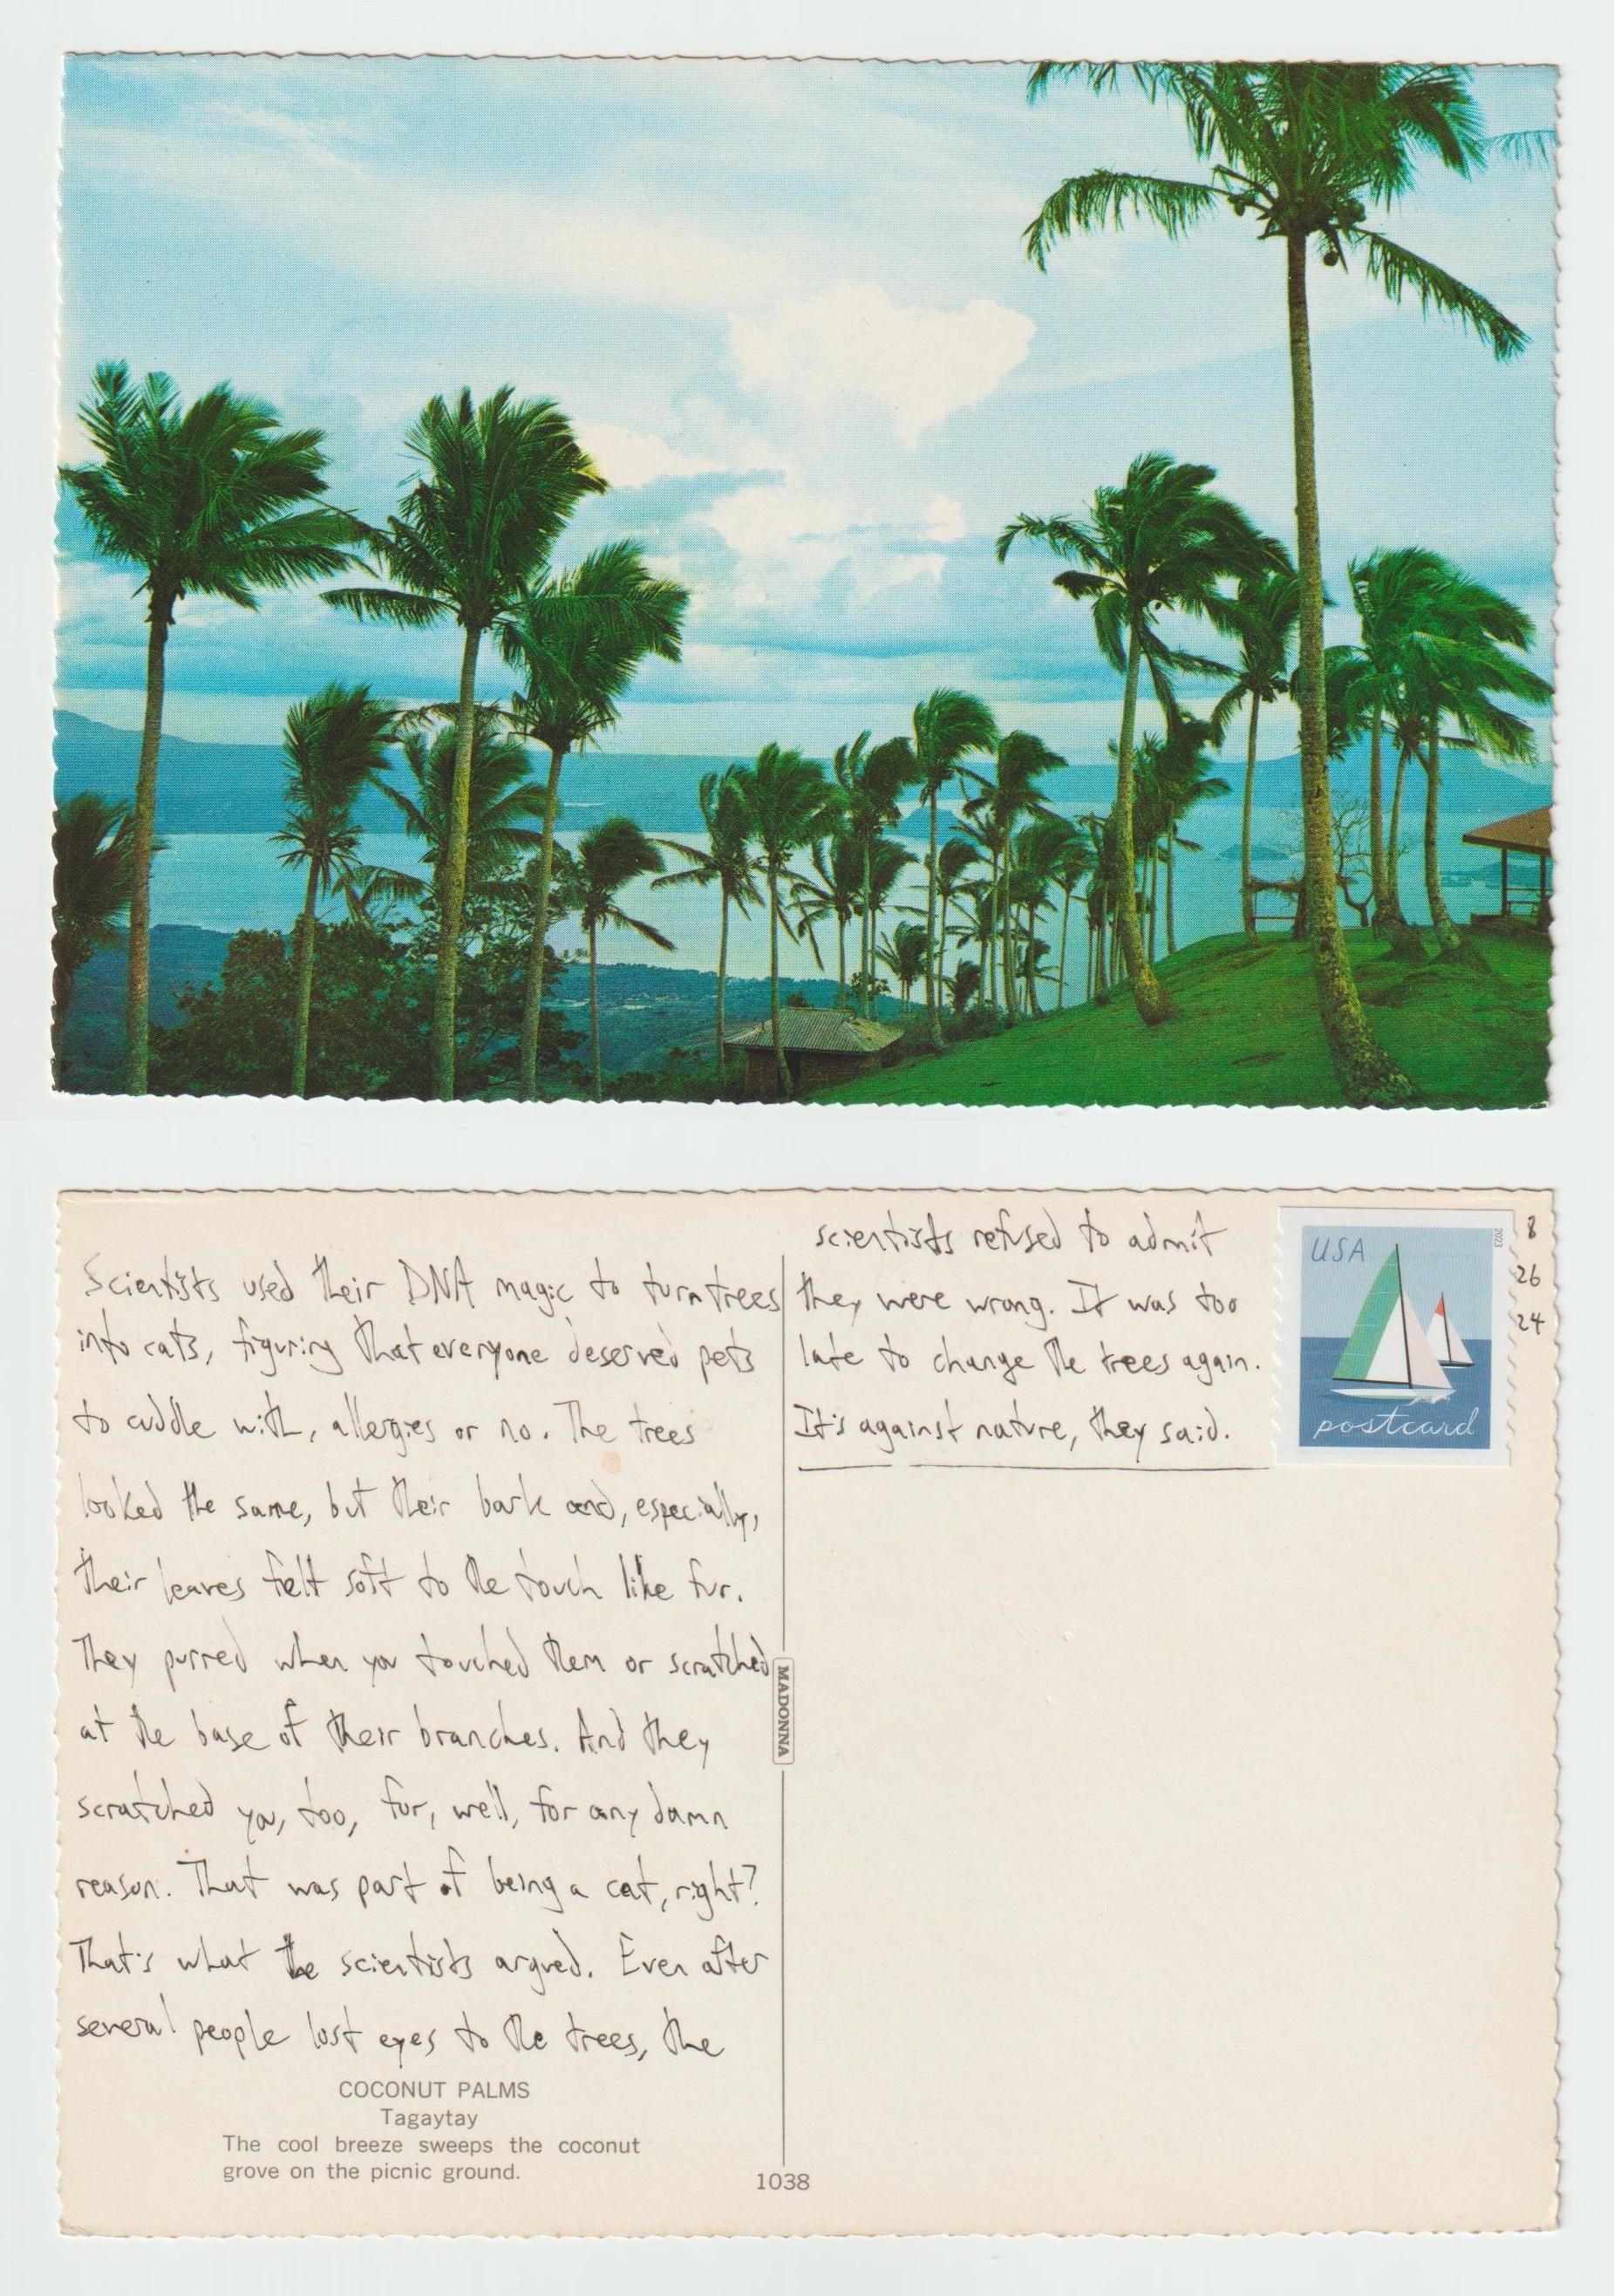 Scientists used their DNA magic to turn trees
into cats, figuring that everyone deserved pets
to cuddle with, allergies or no. The trees
looked the same, but their bark and, especially,
their leaves felt soft to the touch like fur.
They purred when you touched them or scratched
at the base of their branches. And they
scratched you, too, for, well, for any damn
reason. That was part of being a cat, right?
That's what the scientists argued. Even after
several people lost eyes to the trees, the
COCONUT PALMS
Tagaytay
The cool breeze sweeps the coconut
grove on the picnic ground.
MADONNA
1038
scientists refused to admit
they were wrong. It was too
late to change the trees again.
It's against nature, they said.
USA
2023
postcard
8
26
24